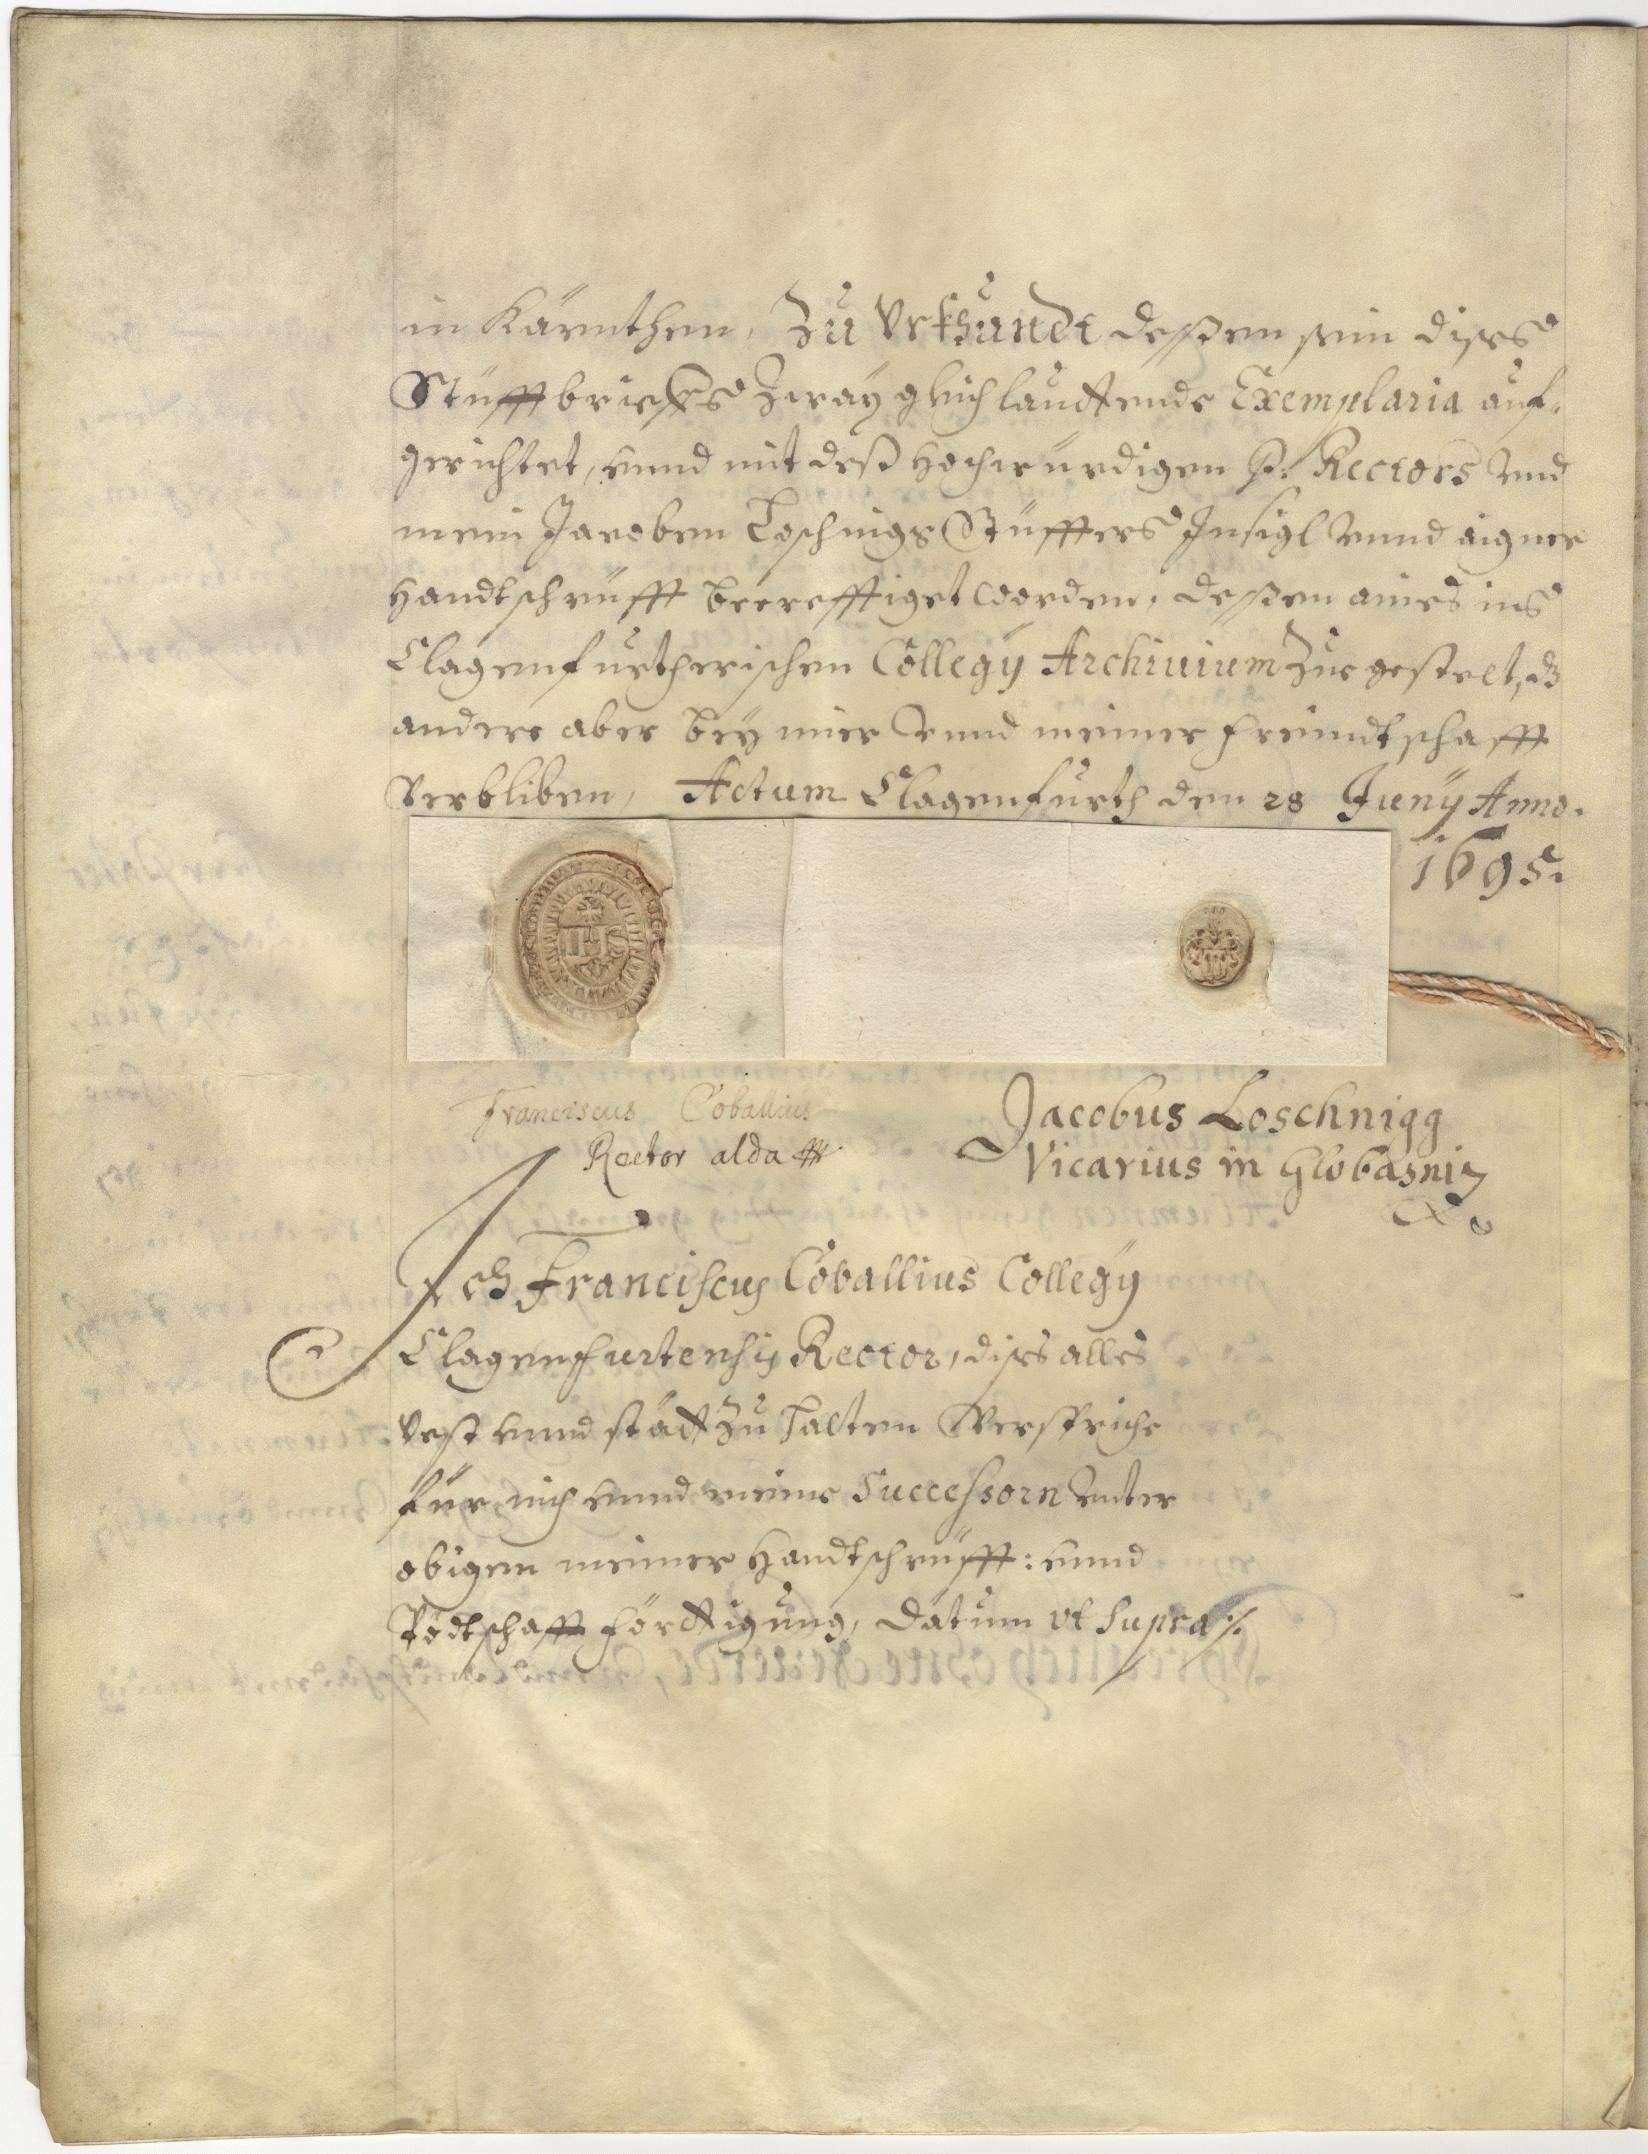 in Kärnthen, Zu Vrkhundt dessen sein dises
Stüfftbrieffs Zway gleichlauttende Exemplaria auf-
gerichtet, vnnd mit dess Hochwürdigen P: Rectors vnd
mein Jacoben Loschnigs Stüffters Insigl vnnd aigner
Handtschrüfft becrefftiget worden, dessen aines ins
Clagenfurtherischen Collegÿ Archiuium Zue gestelt, dz
andere aber beÿ mier vnnd meiner freundtschafft
verbliben, Actum Clagenfurth den 28 Junÿ Anno.
1695.
Franciscus Coballius
Rector alda
Jacobus Loschnigg
Vicarius in Globasniz
IHS
Ich Franciscus Coballius Collegÿ
Clagenfurtensis Rector, dises alles
vest vnnd stätt Zu halten Verspriche
für mich vnnd meine Successorn vnter
obigen meiner Handtschrüfft: vnnd
Pödtschafft förttigung, Datum vt Supra